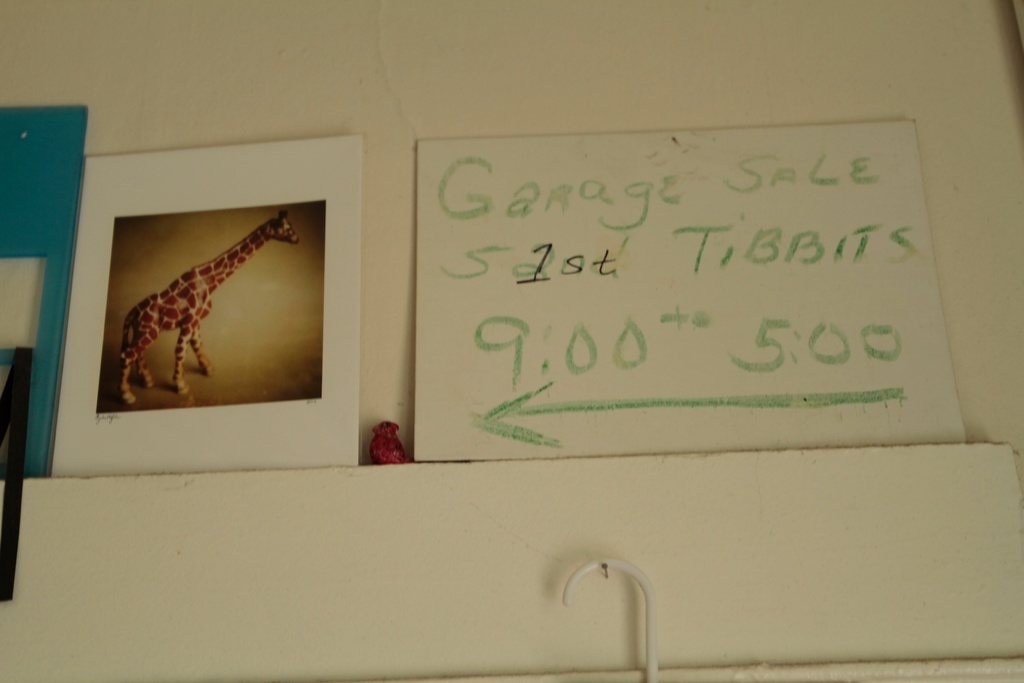 Garage SALE
1st TiBBiTS
9:00 to 5:00